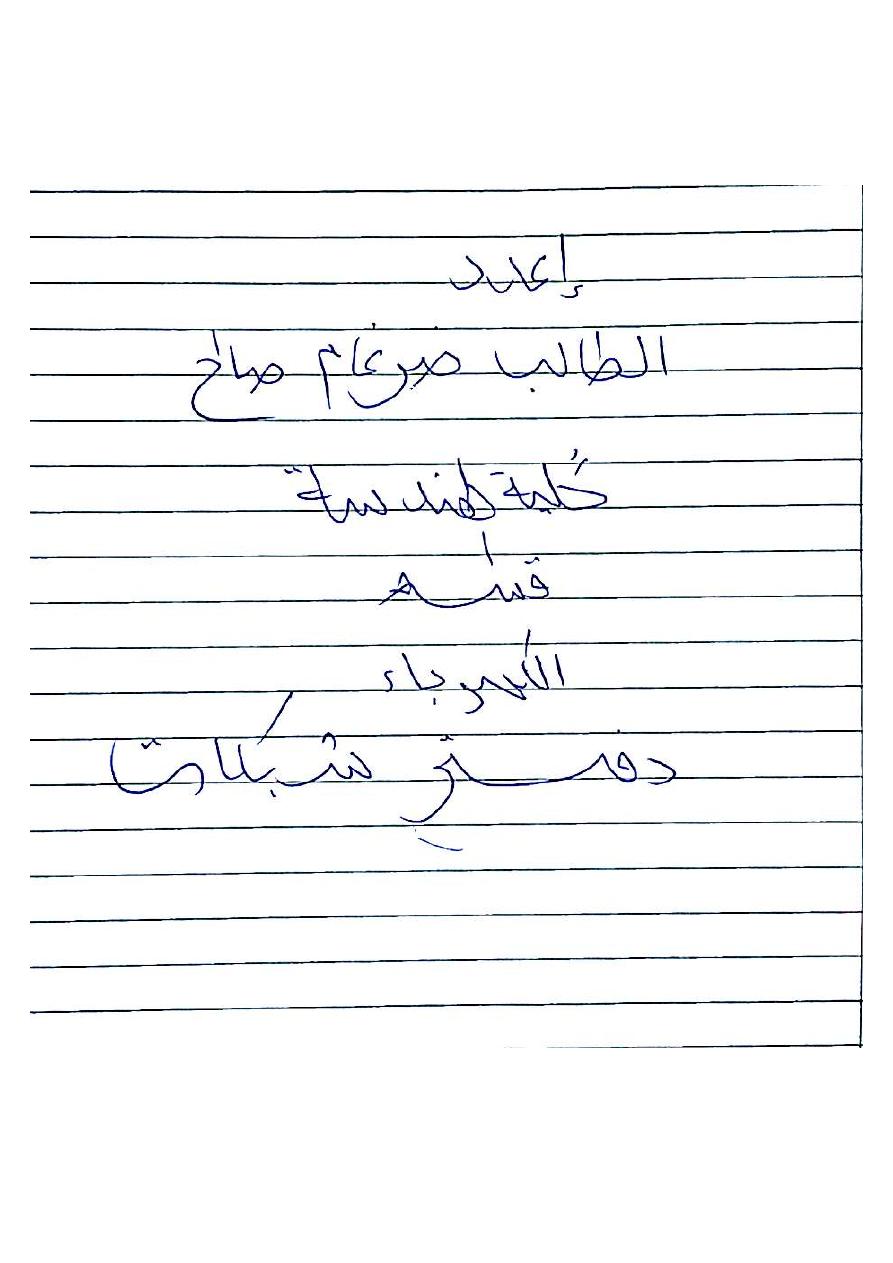 إعداد
الطالب ضرغام صالح
كلية هندسة
قسم
الكهرباء
دفتر شبكات